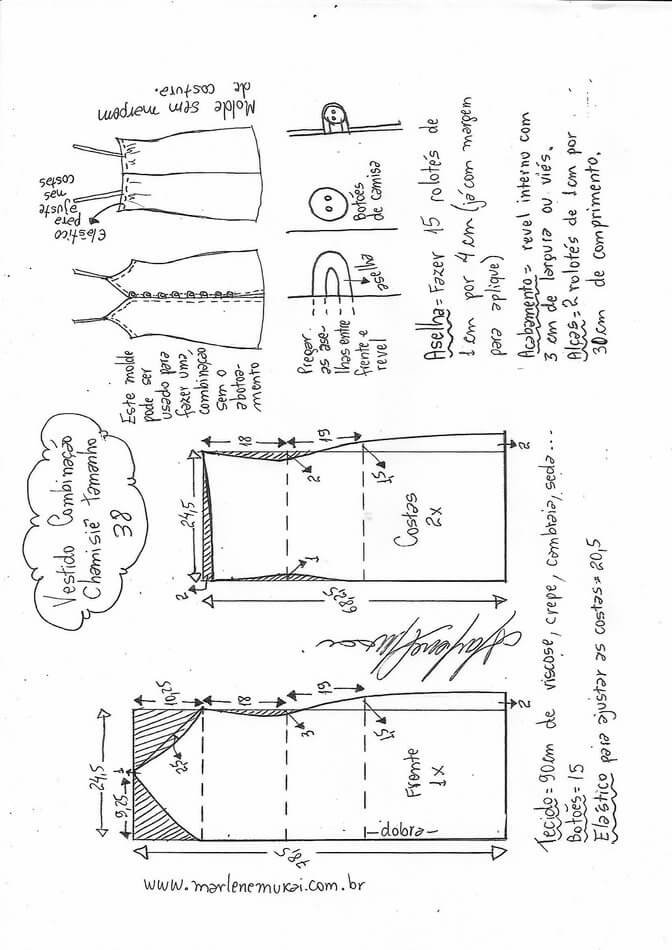 Vestido Combinação
Chamisiê tamanho
38
Este molde
pode ser
usado para
fazer uma
combinação
sem o
abotoa-
mento
Elástico
para
ajuste
nas
costas
Molde sem margem
de costura.
Pregar
as ase-
lhas entre
frente e
revel
aselha
Botões
de camisa
Aselha = Fazer 15 rolotés de
1cm por 4cm (já com margem
para aplique)
Acabamento = revel interno com
3 cm de largura ou viés.
Alças = 2 rolotés de 1cm por
30cm de comprimento.
www.marlenemukai.com.br
78,5
24,5
9,25
1
10,25
18
19
25
3
1,5
2
Frente
1x
-dobra-
68,25
24,5
2
18
19
1
2
1,5
2
Costas
2x
Tecido = 90cm de viscose, crepe, cambraia, seda...
Botões = 15
Elástico para ajustar as costas = 20,5